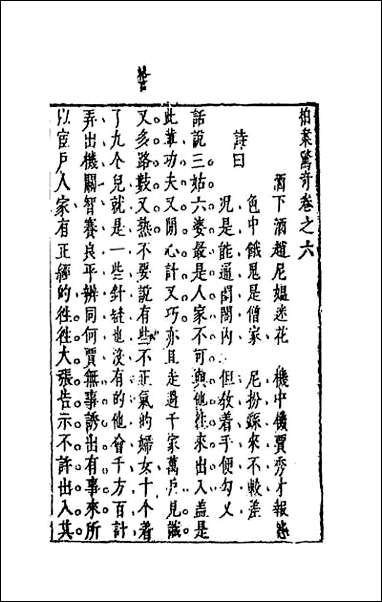 拍案驚奇卷之六
酒下酒趙尼媼迷花　機中機賈秀才報怨
詩曰
色中餓鬼是僧家　尼扮繇來不較差
況是能通閨閣內　但教着手便勾叉
話說三姑六婆最是人家不可與他徃來出入蓋是
此輩功夫又閒心計又巧亦且走過千家萬戶見識
又多路數又熟不要說有些不正氣的婦女十个着
了九个兒就是一些針縫也沒有的他會千方百計
弄出機關智賽良平辨同何賈無事誘出有事來所
以宦戶人家有正經的徃徃大張告示不許出入其